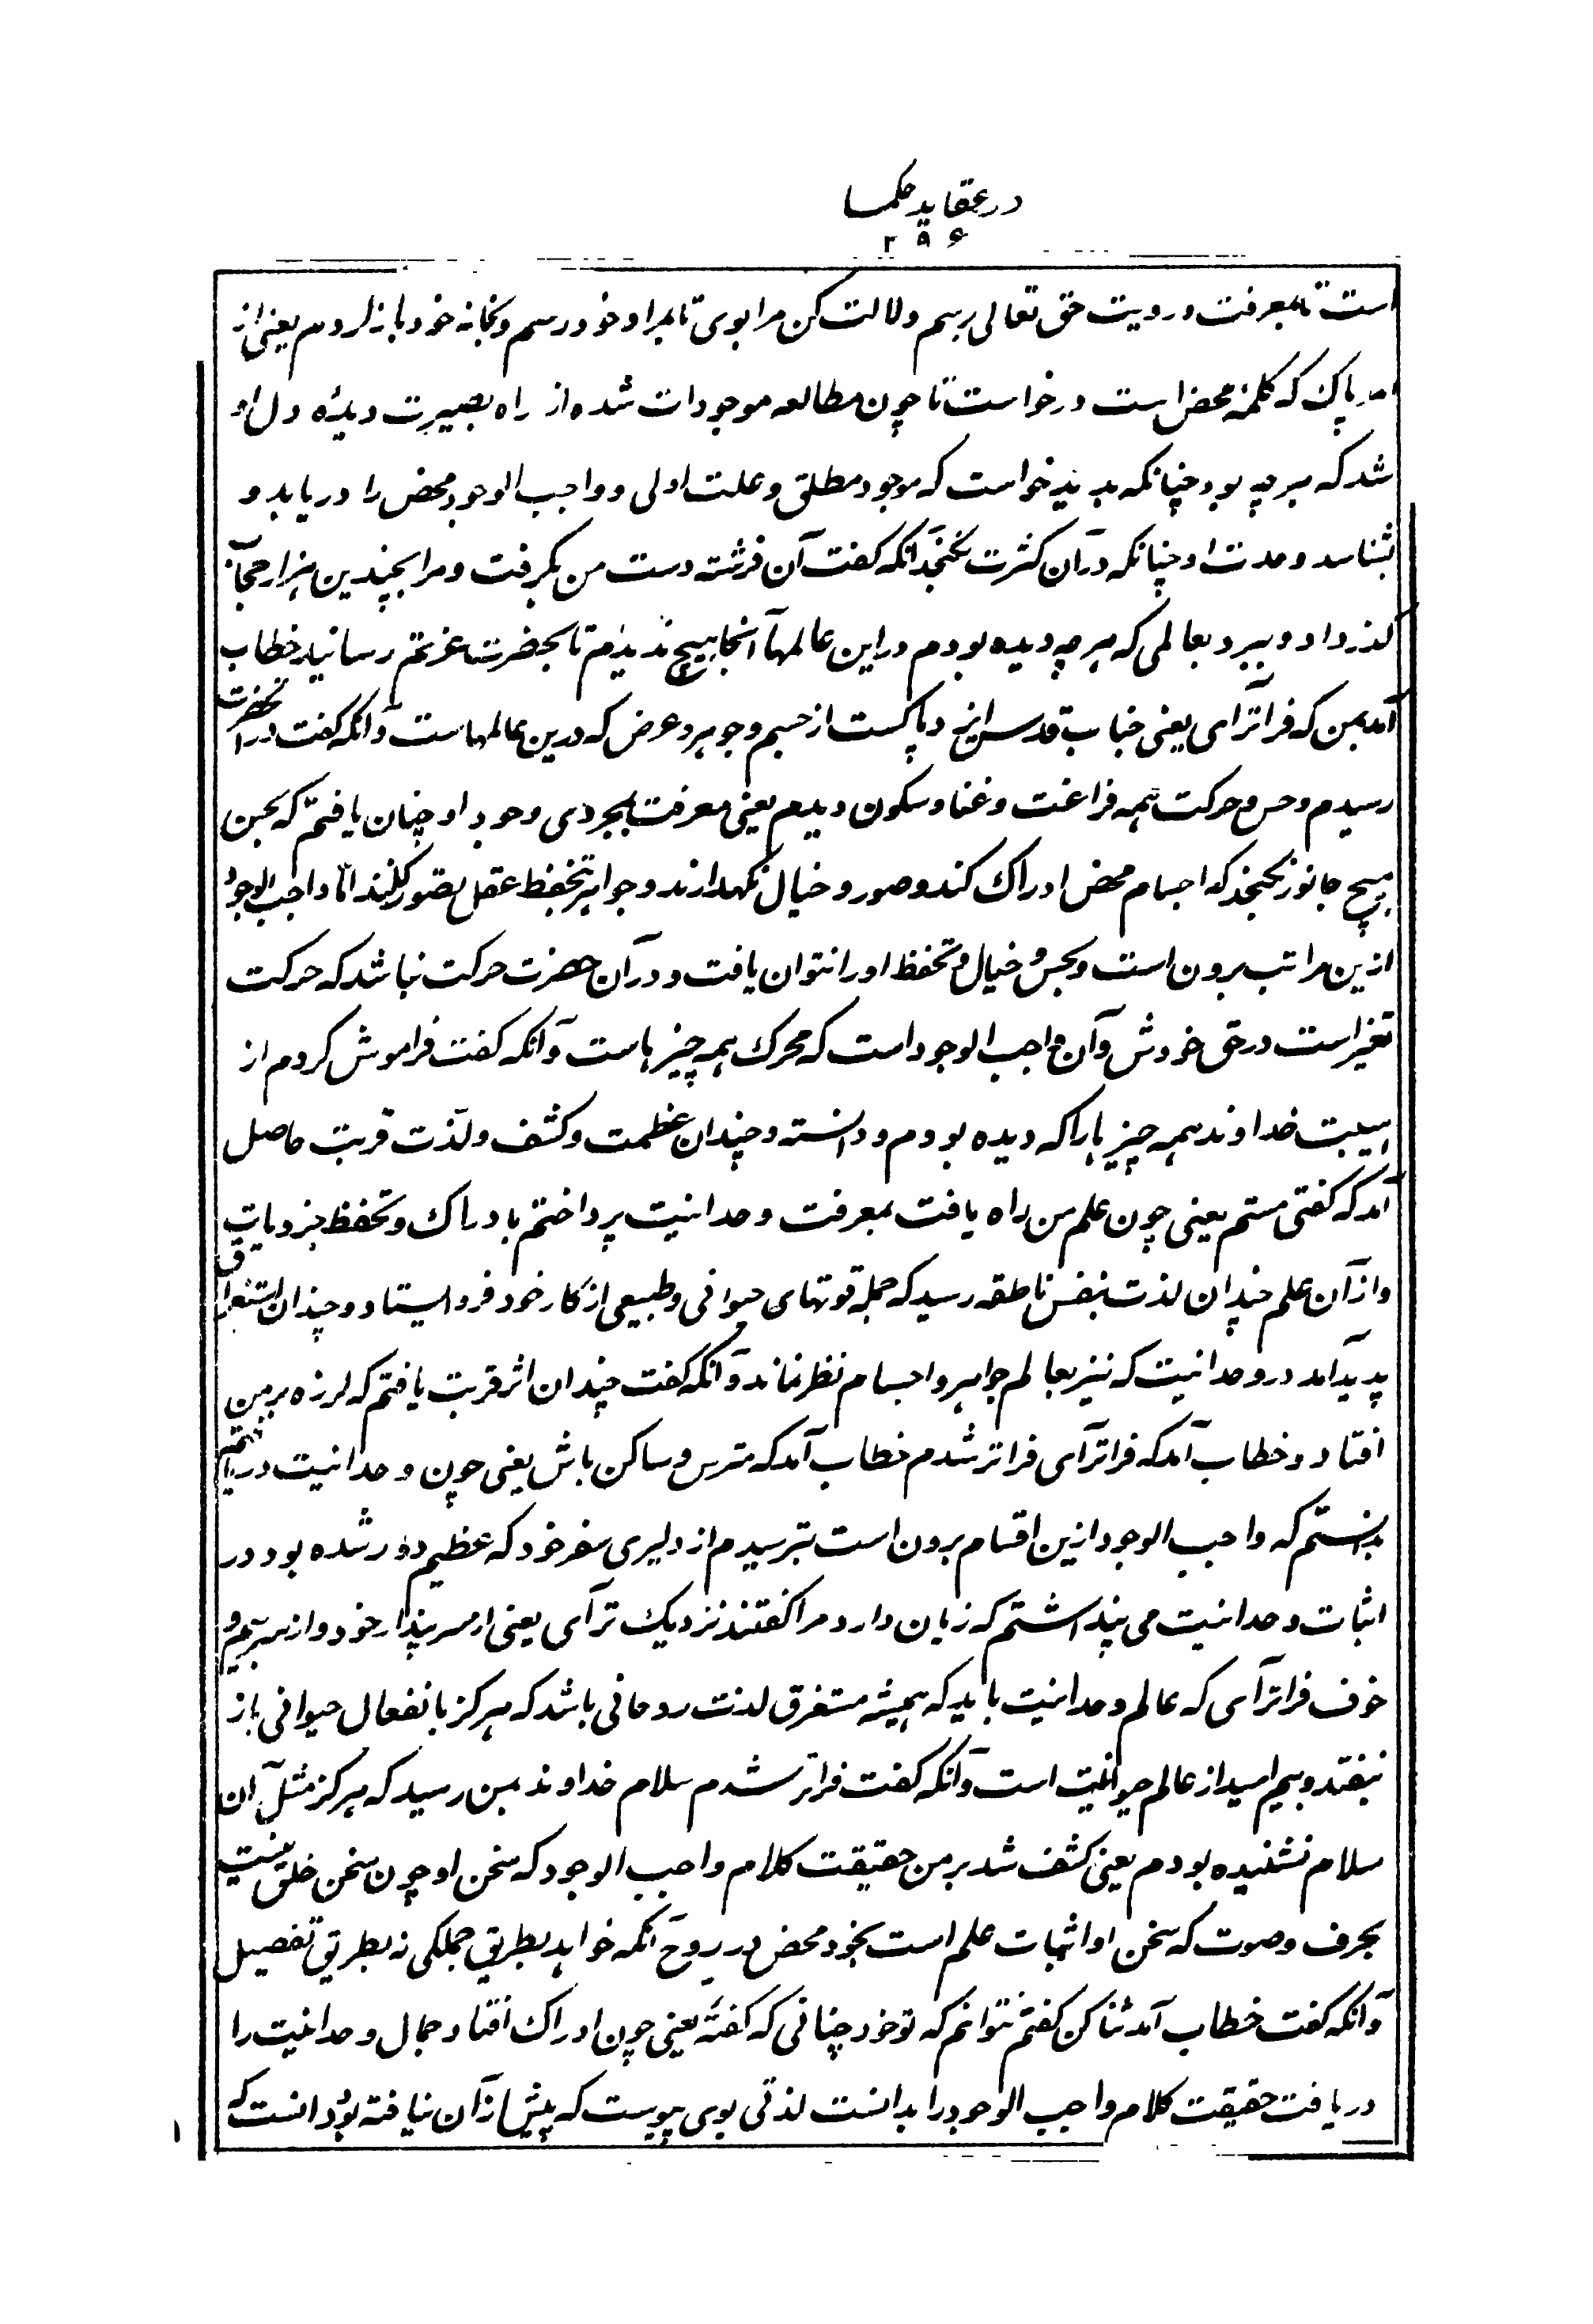 در عقاید حکما
۲۹۶
است تا بمعرفت و رویت حق تعالی رسم دلالت کن مرا بوی تا بمراد خود رسم و بخانه خود باز کردم یعنی از
امر پاک که کلمهٔ محض است درخواست تا چون مطالعه موجودات شده از راه بصیرت دیدهٔ دل او
شد که هر چه بود چنانکه بد بدید خواست که موجود مطلق و علت اولی و واجب الوجود محض را دریابد و
بشناسد وحدت او چنانکه در آن کثرت نکنجد آنکه کفت آن فرشته دست من بکرفت و مرا بچندین هزار حجاب
کذر داد و ببرد بعالمی که هر چه دیده بودم در این عالمها آنجا هیچ ندیدم تا بحضرت عزتم رسانید خطاب
آمد بمن که فراتر آی یعنی جناب قدس ایزد پاکست از جسم و جوهر و عرض که درین عالمهاست و آنکه کفت در آنحضرت
رسیدم و حس و حرکت همه فراغت و غنا و سکون دیدم یعنی معرفت بمجردی وجود او چنان یافتم که بحس
هیچ جانور نکنجد که اجسام محض ادراک کند و صور و خیال نکهدارند و جواهر بتحفظ عقل تصور کنند اما واجب الوجود
ازین مراتب برون است و بحس و خیال و تحفظ او را نتوان یافت و در آن حضرت حرکت نباشد که حرکت
تغیر است در حق خودش و آن واجب الوجود است که محرک همه چیزهاست و آنکه کفت فراموش کردم از
هیبت خداوند همه چیزها را که دیده بودم و دانسته و چندان عظمت و کشف و لذت قربت حاصل
آمد که کفتی مستم یعنی چون علم من راه یافت بمعرفت وحدانیت پرداختم بادراک و تحفظ جزویات
و از آن علم چندان لذت بنفس ناطقه رسید که جمله قوتهای حیوانی و طبیعی از کار خود فرو ایستاد و چندان استغراق
پدید آمد در وحدانیت که نیز بعالم جواهر و اجسام نظر نماند و آنکه کفت چندان اثر قربت یافتم که لرزه بر من
افتاد و خطاب آمد که فراتر آی فراتر شدم خطاب آمد که مترس و ساکن باش یعنی چون وحدانیت دریافتم
بدانستم که واجب الوجود ازین اقسام برون است بترسیدم از دلیری سفر خود که عظیم دور شده بود در
اثبات وحدانیت می پنداشتم که زیان دارد مرا کفتند نزدیک تر آی یعنی از سر پندار خود و از سر بیم و
خوف فراتر آی که عالم وحدانیت باید که همیشه مستغرق لذت روحانی باشد که هرکز بانفعال حیوانی باز
نیفتد و بیم امید از عالم حیوانیت است و آنکه کفت فراتر شدم سلام خداوند بمن رسید که هرکز مثل آن
سلام نشنیده بودم یعنی کشف شد بر من حقیقت کلام واجب الوجود که سخن او چون سخن خلق نیست
بحرف و صوت که سخن او اثبات علم است بخود محض در روح آنکه خواهد بطریق جملکی نه بطریق تفصیل
و آنکه کفت خطاب آمد ثنا کن کفتم نتوانم که تو خود چنانی که کفتهٔ یعنی چون ادراک افتاد جمال وحدانیت را
دریافت حقیقت کلام واجب الوجود را بدانست لذتی بوی پیوست که پیش از آن نیافته بود دانست که